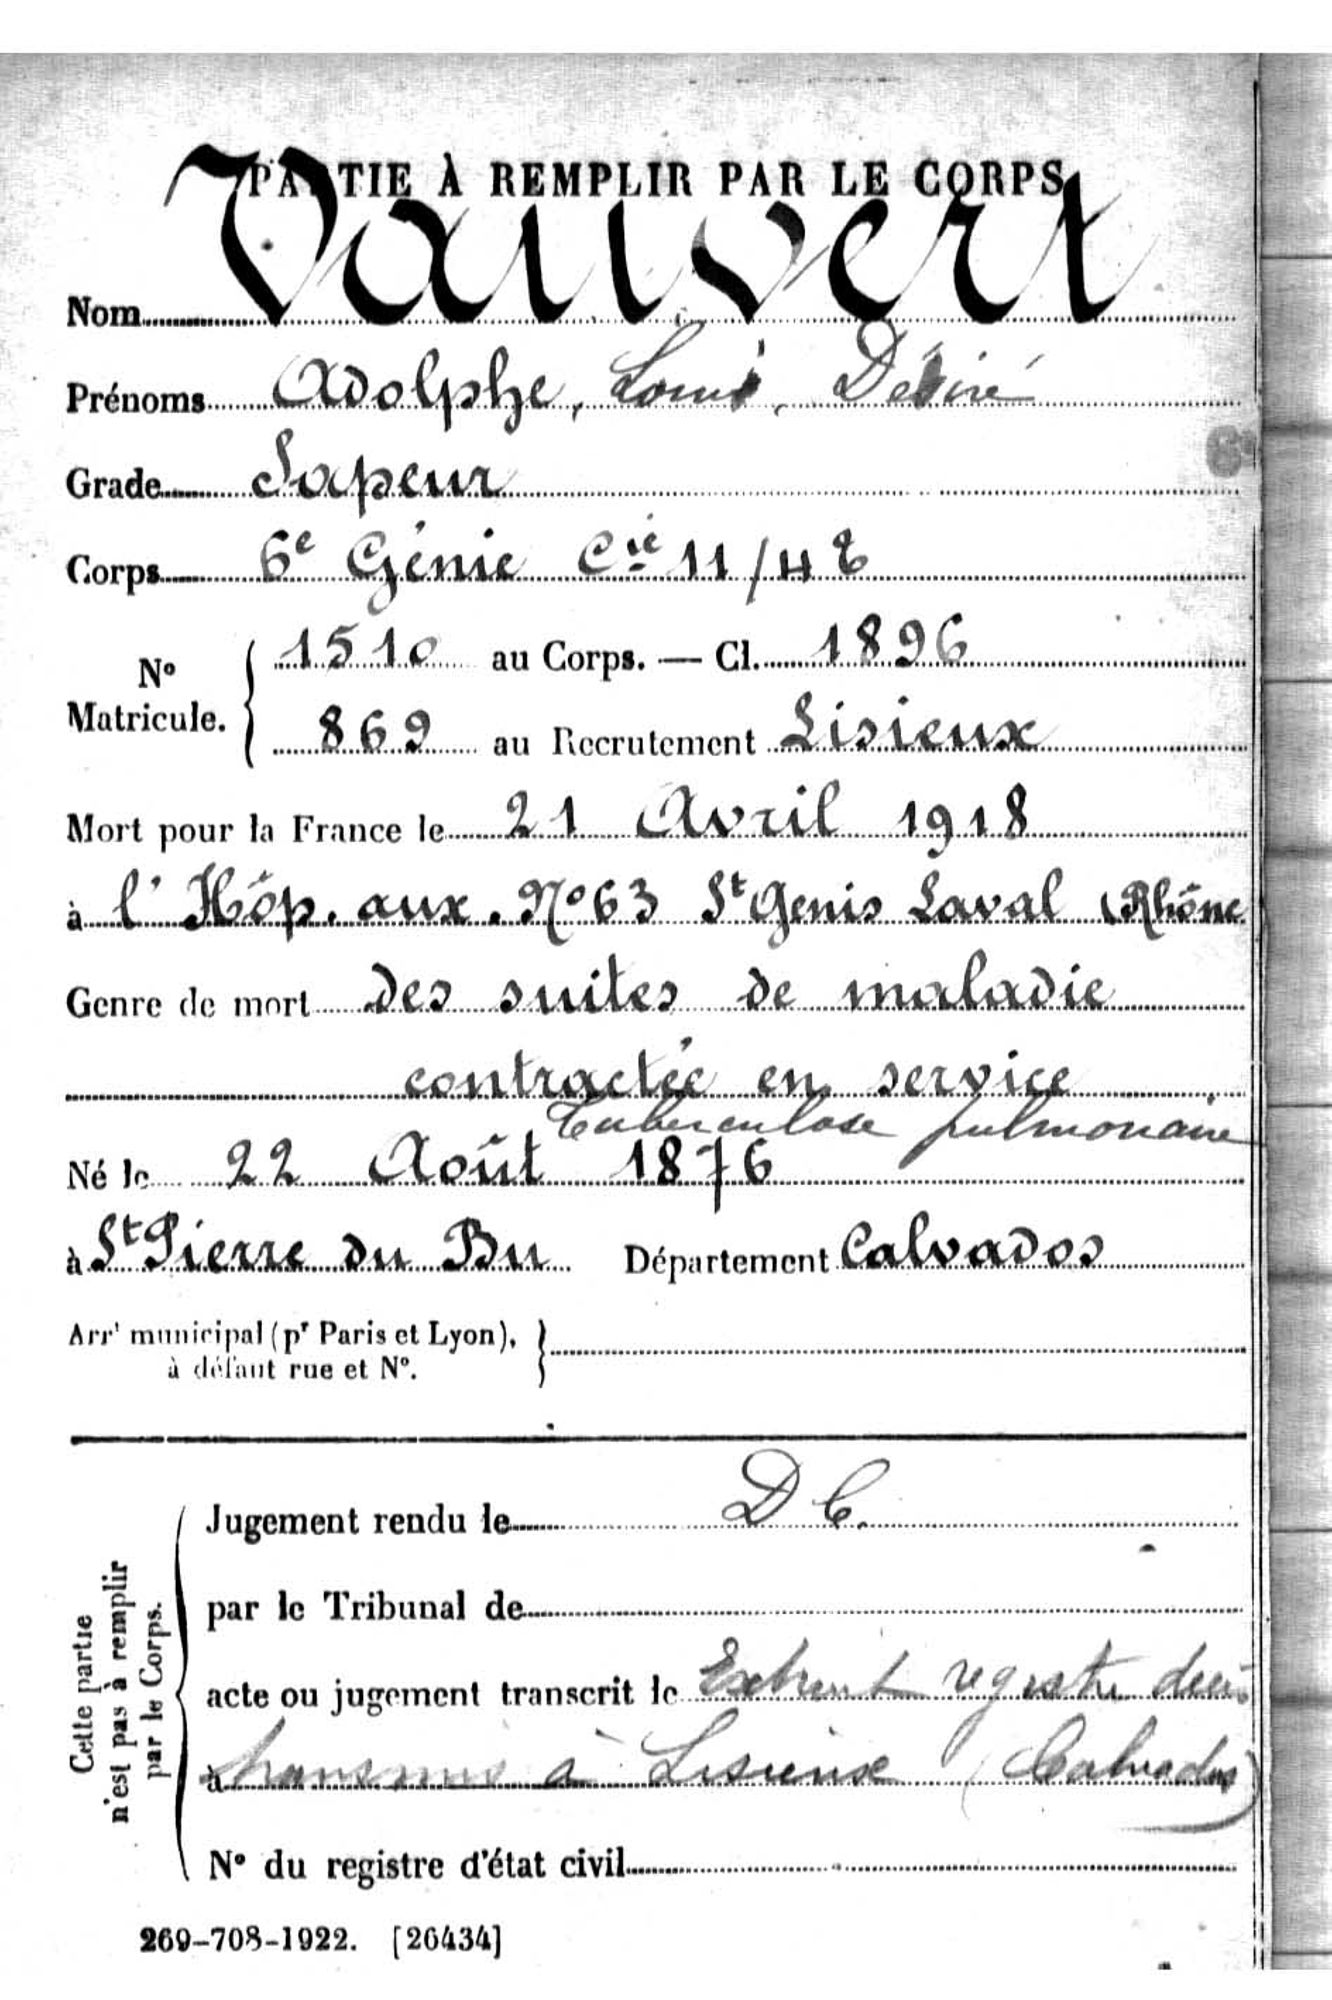 PARTIE À REMPLIR PAR LE CORPS
Nom Vauvert
Prénoms Adolphe, Louis, Désiré
Grade Sapeur
Corps 6e Génie Cie 11/48
No Matricule. 1510 au Corps. — Cl. 1896
869 au Recrutement Lisieux
Mort pour la France le 21 Avril 1918
à l'Hôp. aux. No 63 St Genis Laval (Rhône
Genre de mort des suites de maladie
contractée en service
Tuberculose pulmonaire
Né le 22 Août 1876
à St Pierre du Bu Département Calvados
Arrt municipal (pr Paris et Lyon),
à défaut rue et No.
Cette partie
n'est pas à remplir
par le Corps.
Jugement rendu le D C.
par le Tribunal de
acte ou jugement transcrit le Extrait registre décès
à transmis à Lisieux (Calvados)
No du registre d'état civil
269-708-1922. [26434]